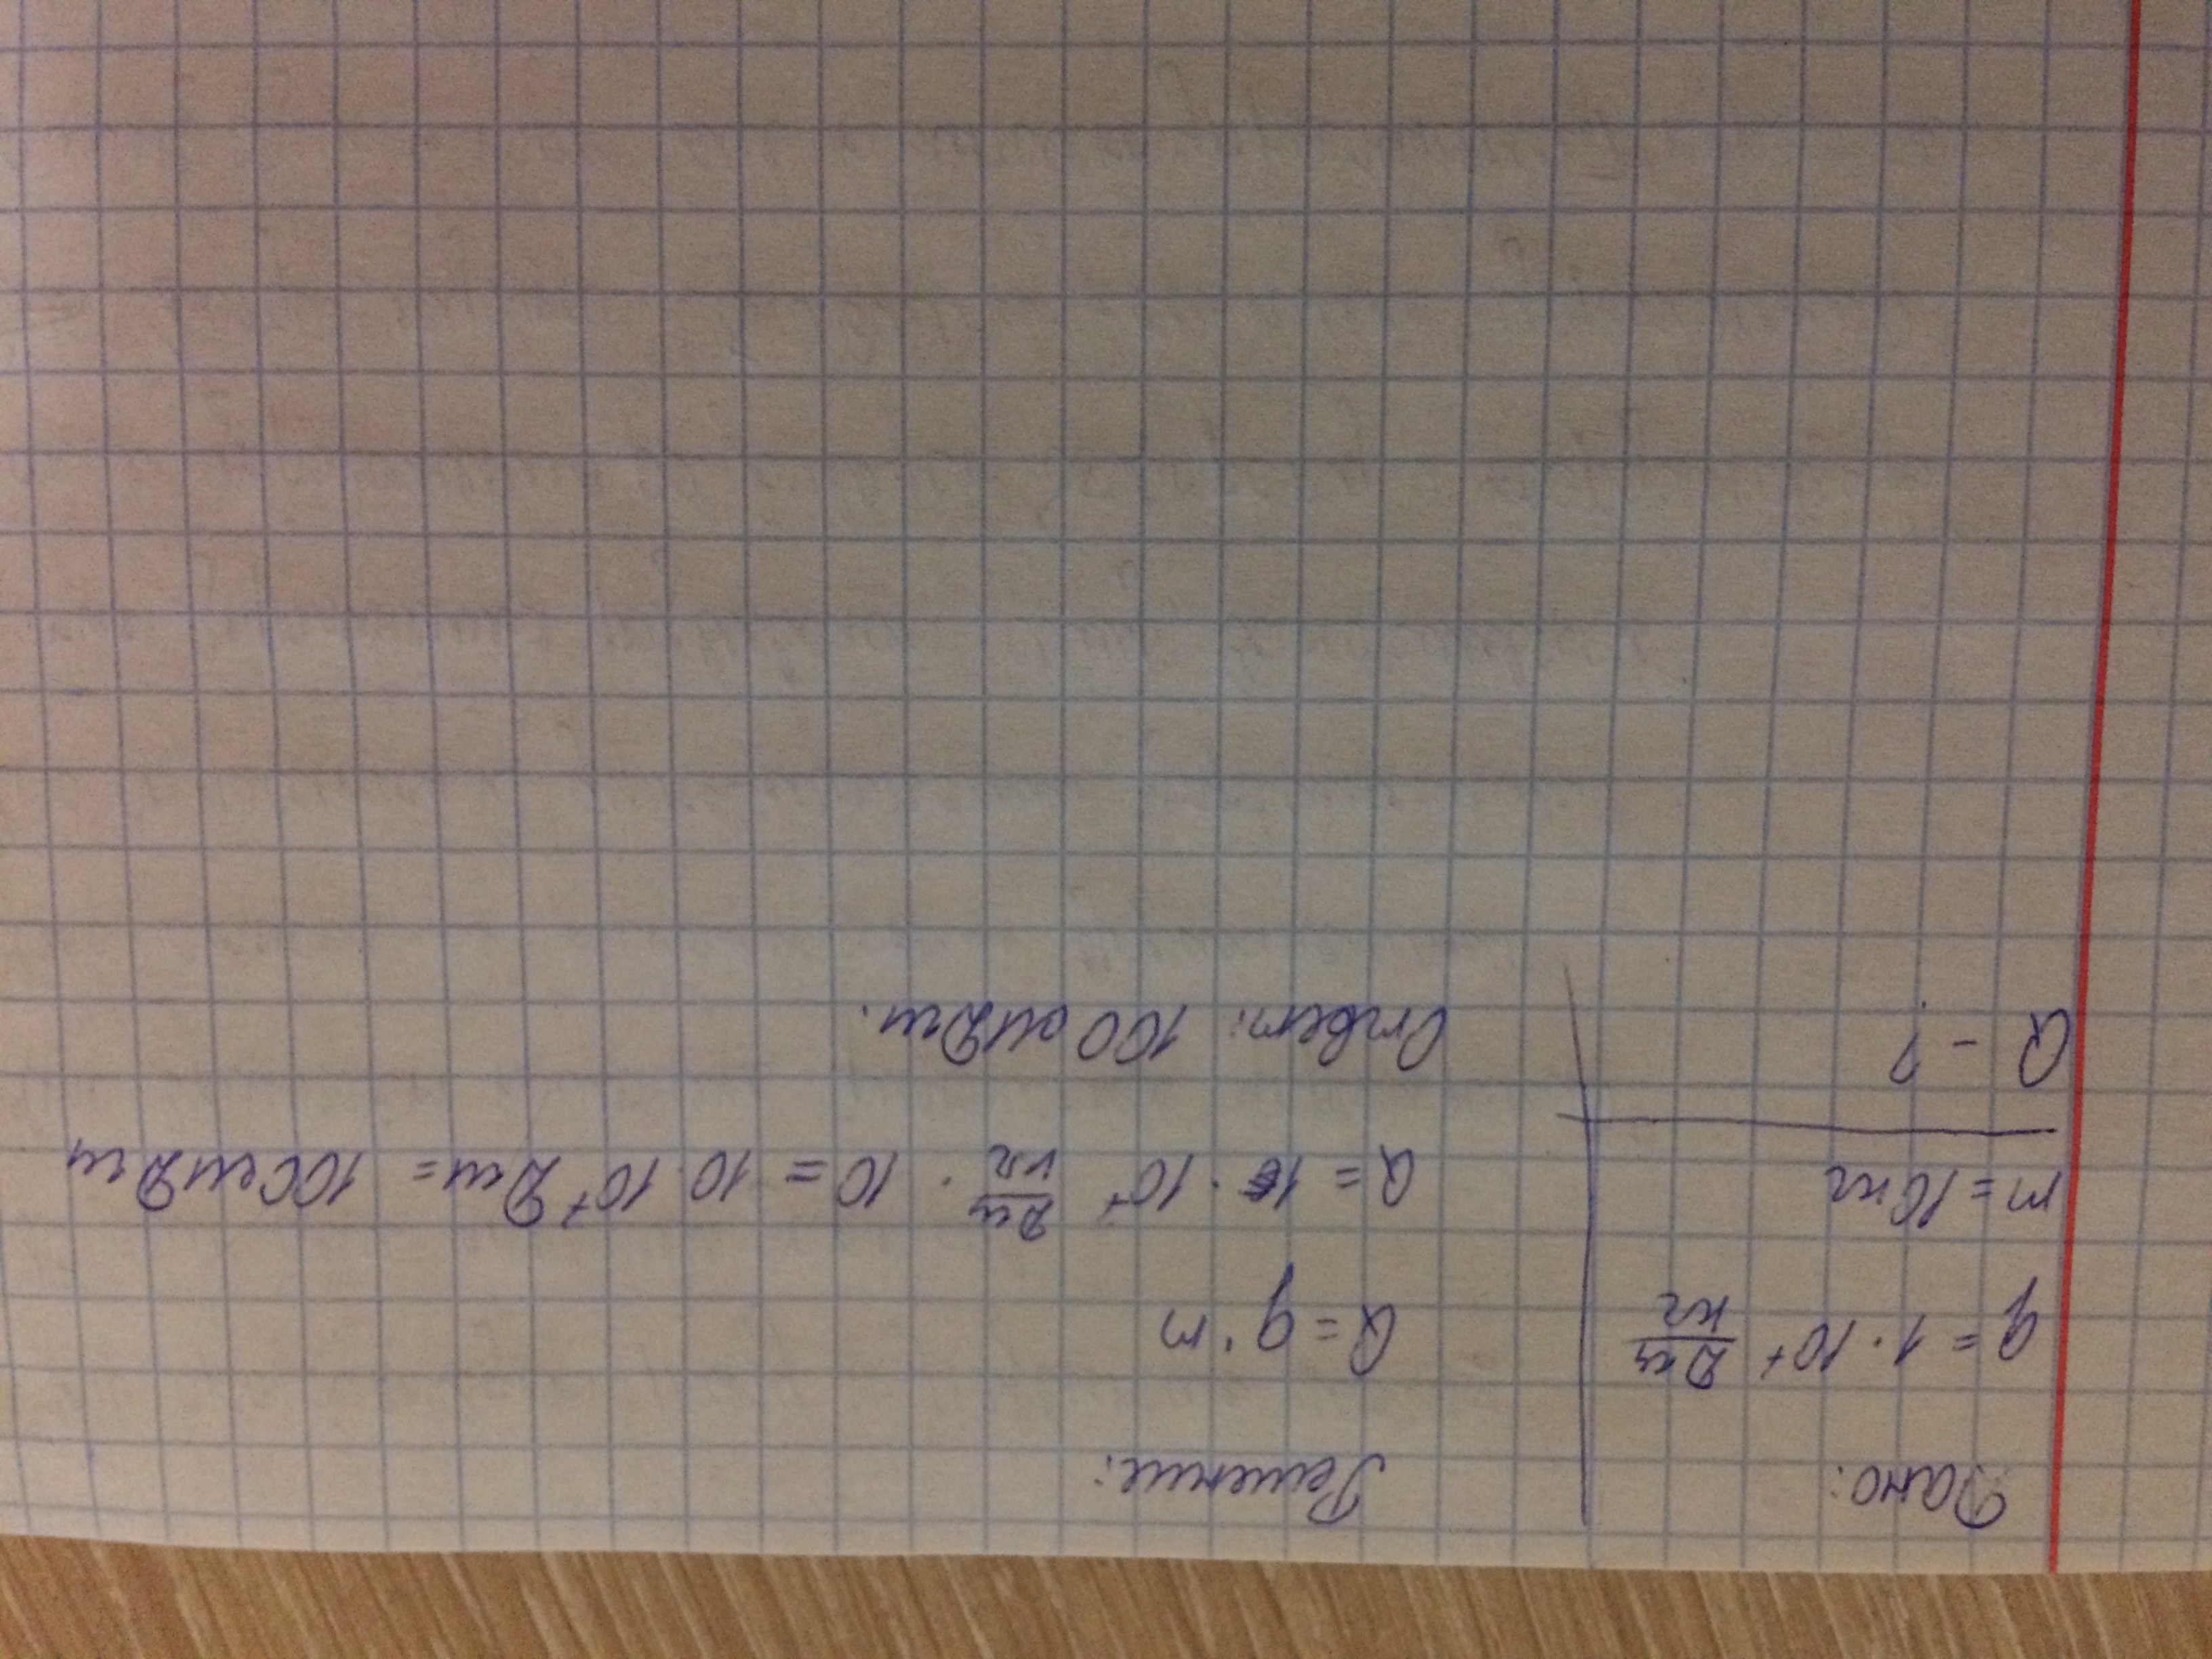 Дано:
q = 1 · 10⁷ Дж/кг
m = 10 кг
Q - ?
Решение:
Q = q · m
Q = 1 · 10⁷ Дж/кг · 10 = 10 · 10⁷ Дж = 100 мДж
Ответ: 100 мДж.